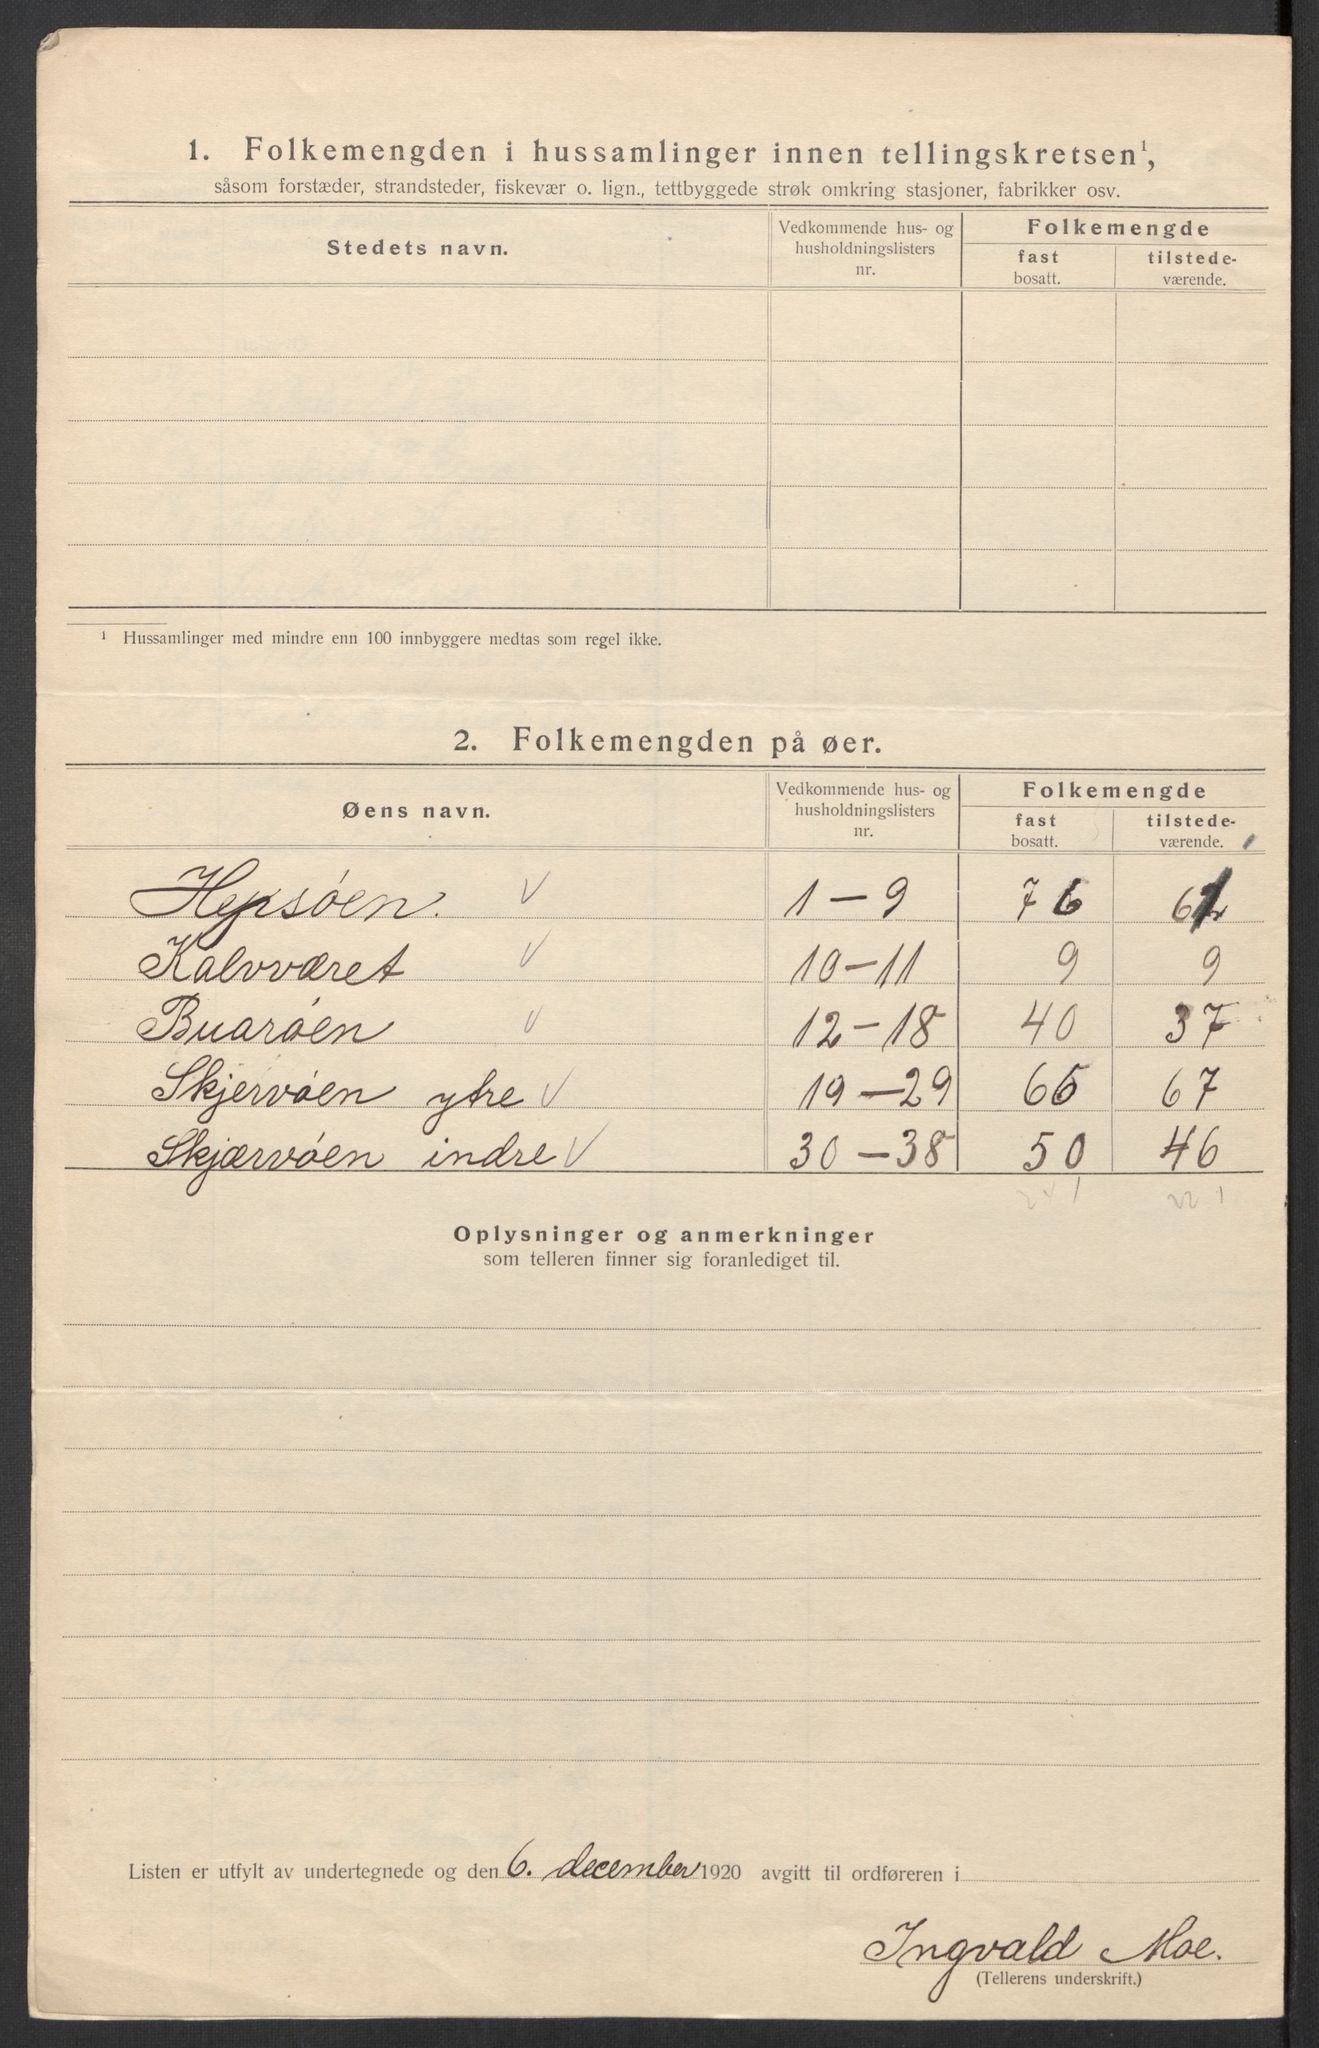 1. Folkemengden i hussamlinger innen tellingskretsen¹,
såsom forstæder, strandsteder, fiskevær o. lign., tettbyggede strøk omkring stasjoner, fabrikker osv.
Stedets navn.
Vedkommende hus- og husholdningslisters nr.
Folkemengde
fast bosatt.
tilstedeværende.
¹ Hussamlinger med mindre enn 100 innbyggere medtas som regel ikke.
2. Folkemengden på øer.
Øens navn.
Vedkommende hus- og husholdningslisters nr.
Folkemengde
fast bosatt.
tilstedeværende.
Hepsøen. 1 - 9 76
Kalvværet 10 - 11 9 9
Buarøen 12 - 18 40 37
Skjervøen ytre 19 - 29 67
Skjærvøen indre 30 - 38 50 46
241 221
Oplysninger og anmerkninger
som telleren finner sig foranlediget til.
Listen er utfylt av undertegnede og den 6. december 1920 avgitt til ordføreren i
Ingvald Moe.
(Tellerens underskrift.)